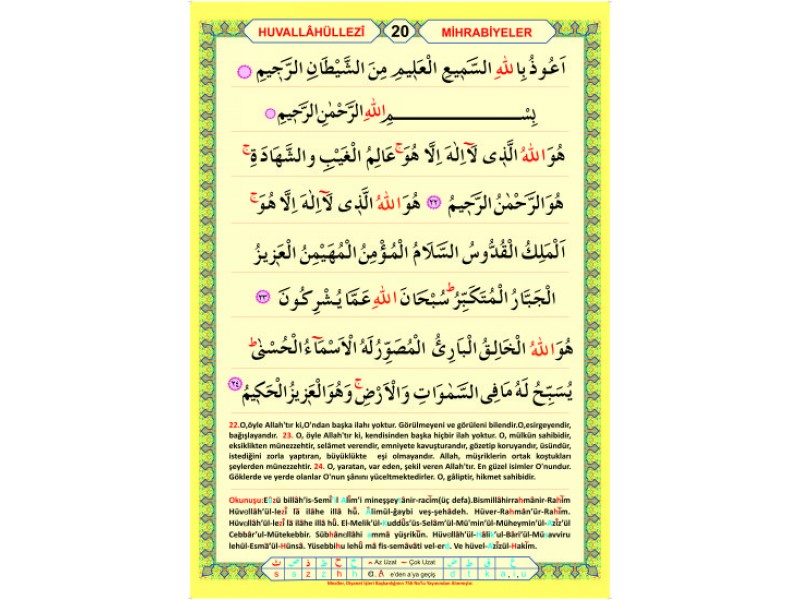 HUVALLÂHÜLLEZÎ 20 MİHRABİYELER
اَعُوذُ بِاللهِ السَّمِيعِ الْعَلِيمِ مِنَ الشَّيْطَانِ الرَّجِيمِ
بِسْمِ اللهِ الرَّحْمٰنِ الرَّحِيمِ
هُوَ اللهُ الَّذِى لَآ اِلٰهَ اِلَّا هُوَ ۚ عَالِمُ الْغَيْبِ وَالشَّهَادَةِ ۚ
هُوَ الرَّحْمٰنُ الرَّحِيمُ ٢٢ هُوَ اللهُ الَّذِى لَآ اِلٰهَ اِلَّا هُوَ ۚ
اَلْمَلِكُ الْقُدُّوسُ السَّلَامُ الْمُؤْمِنُ الْمُهَيْمِنُ الْعَزِيزُ
الْجَبَّارُ الْمُتَكَبِّرُ ؕ سُبْحَانَ اللهِ عَمَّا يُشْرِكُونَ ٢٣
هُوَ اللهُ الْخَالِقُ الْبَارِئُ الْمُصَوِّرُ لَهُ الْاَسْمَآءُ الْحُسْنٰى ؕ
يُسَبِّحُ لَهُ مَا فِى السَّمٰوَاتِ وَالْاَرْضِ ۚ وَهُوَ الْعَزِيزُ الْحَكِيمُ ٢٤
22.O,öyle Allah'tır ki,O'ndan başka ilahı yoktur. Görülmeyeni ve görüleni bilendir.O,esirgeyendir,
bağışlayandır. 23. O, öyle Allah'tır ki, kendisinden başka hiçbir ilah yoktur. O, mülkün sahibidir,
eksiklikten münezzehtir, selâmet verendir, emniyete kavuşturandır, gözetip koruyandır, üsündür,
istediğini zorla yaptıran, büyüklükte eşi olmayandır. Allah, müşriklerin ortak koştukları
şeylerden münezzehtir. 24. O, yaratan, var eden, şekil veren Allah'tır. En güzel isimler O'nundur.
Göklerde ve yerde olanlar O'nun şânını yüceltmektedirler. O, gâliptir, hikmet sahibidir.
Okunuşu:Eûzü billâh'is-Semî'il Alîm'i mineşşeytânir-racîm(üç defa).Bismillâhirrahmânir-Rahîm
Hüvallâh'ül-lezî lâ ilâhe illâ hû. Âlimül-ğaybi veş-şehâdeh. Hüver-Rahmân'ür-Rahîm.
Hüvallâh'ül-lezî lâ ilâhe illâ hû. El-Melik'ül-Kuddûs'üs-Selâm'ül-Mü'min'ül-Müheymin'ül-Azîz'ül
Cebbâr'ul-Mütekebbir. Sübhânallâhi ammâ yüşrikûn. Hüvallâh'ül-Hâlik'ul-Bâri'ül-Müsavviru
lehül-Esmâ'ül-Hünsâ. Yüsebbihu lehû mâ fis-semâvâti vel-erd. Ve hüvel-Azîzül-Hakîm.
Az Uzat Çok Uzat
e'den a'ya geçiş